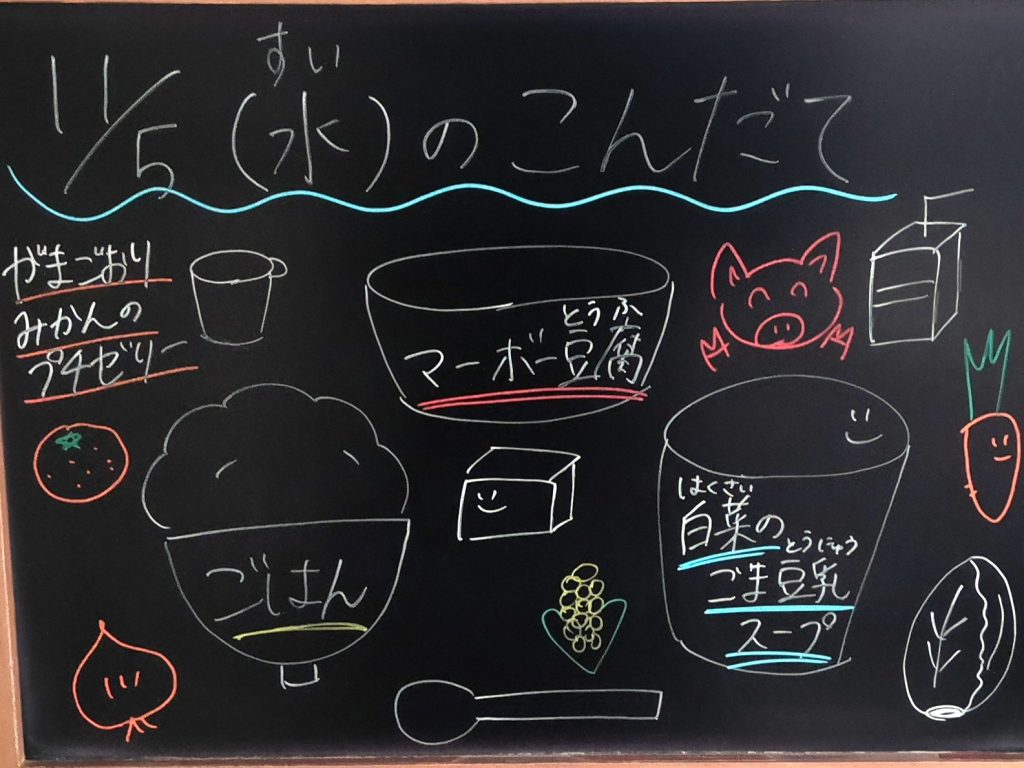 すい
11/5(水)のこんだて
がまごおり
みかんの
プチゼリー
とうふ
マーボー豆腐
ごはん
はくさい
白菜の
とうにゅう
ごま豆乳
スープ